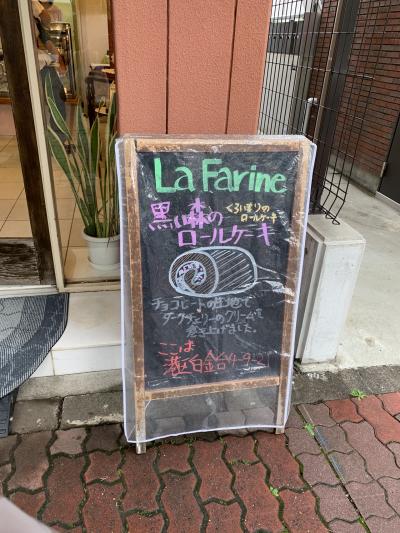 La Farine
黒い森の
くろいもりの
ロールケーキ
ロールケーキ
チョコレートの生地で
ダークチェリーのクリームを
巻き上げました。
ここは
港区白金台4-9-21